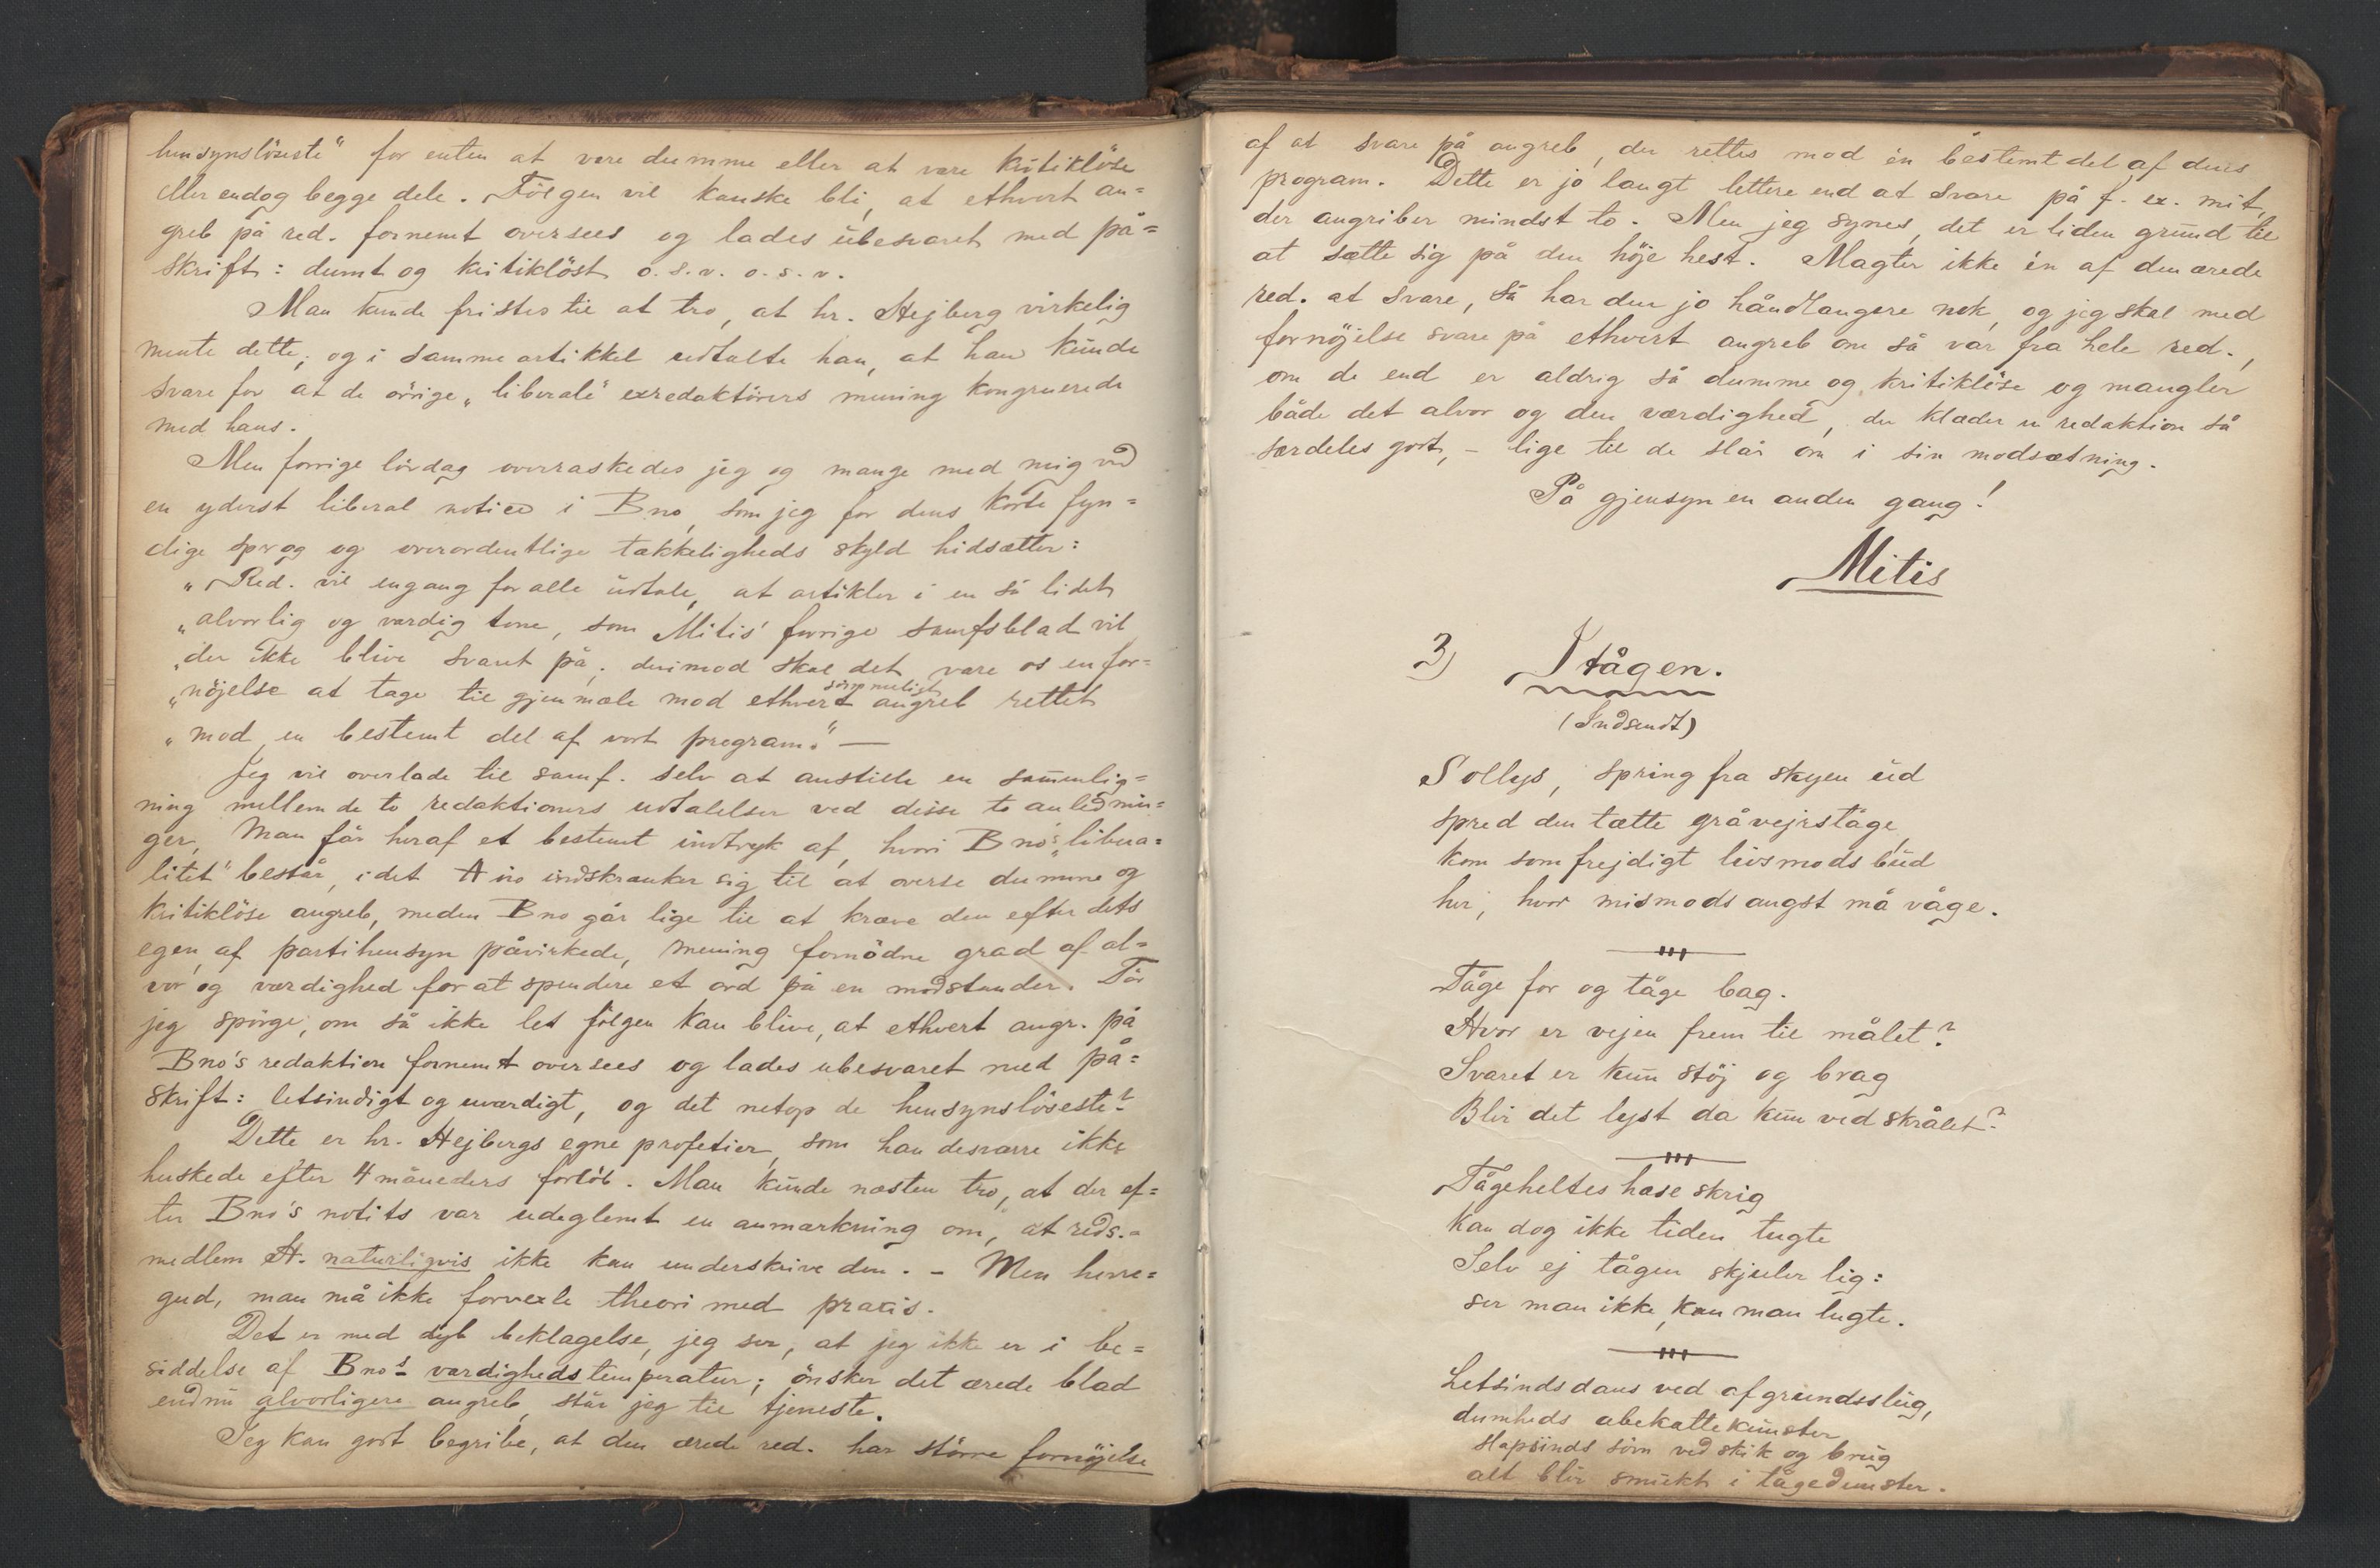 hensynslöseste" for enten at være dumme eller at være kritiklöse
eller endog begge dele. Fölgen vil kanske bli, at ethvert an=
greb på red. fornemt oversees og lades ubesvaret med på=
skrift: dumt og kritiklöst o.s.v. o.s.v.
Man kunde fristes til at tro, at hr. Hejberg virkelig
mente dette; og i samme artikkel udtalte han, at han kunde
svare for at de övrige "liberale" exredaktörers mening kongruerede
med hans.
Men forrige lördag overraskedes jeg og mange med mig ved
en yderst liberal notice i Bno, som jeg for dens korte fyn=
dige sprog og overordentlige tækkeligheds skyld hidsætter:
"Red. vil engang for alle udtale, at artikler i en så lidet
"alvorlig og værdig tone, som Mitis' forrige samfsblad vil
"der ikke blive svaret på; derimod skal det være os en for=
"nöjelse at tage til gjenmæle mod ethvert sömmeligt angreb rettet
"mod en bestemt del af vort program." —
Jeg vil overlade til samf. selv at anstille en sammenlig=
ning mellem de to redaktioners udtalelser ved disse to anlednin=
ger, Man får heraf et bestemt indtryk af, hvori Bno's "libera=
litet" består, idet Ano indskrænker sig til at overse dumme og
kritiklöse angreb, meden Bno går lige til at kræve den efter dets
egen, af partihensyn påvirkede, mening fornödne grad af al=
vor og værdighed for at spendere et ord på en modstander. Tör
jeg spörge, om så ikke let fölgen kan blive, at ethvert angr. på
Bno's redaktion fornemt oversees og lades ubesvaret med på=
skrift: letsindigt og uværdigt, og det netop de hensynslöseste?
Dette er hr. Hejbergs egne profetier, som han desværre ikke
huskede efter 4 måneders forlöb. Man kunde næsten tro, at der ef=
ter Bno's notits var udeglemt en anmærkning om, at reds.=
medlem H. naturligvis ikke kan underskrive den. - Men herre=
gud, man må ikke forvexle theori med praxis.
Det er med dyb beklagelse, jeg ser, at jeg ikke er i be=
siddelse af Bnos værdighedstemperatur; önsker det ærede blad
endnu alvorligere angreb, står jeg til tjeneste.
Jeg kan godt begribe, at den ærede red. har större fornöjelse
af at svare på angreb, der rettes mod én bestemt del af dens
program. Dette er jo langt lettere end at svare på f. ex. mit,
der angriber mindst to. Men jeg synes, det er liden grund til
at sætte sig på den höje hest. Magter ikke én af den ærede
red. at svare, så har den jo håndlangere nok, og jeg skal med
fornöjelse svare på ethvert angreb om så var fra hele red.,
om de end er aldrig så dumme og kritiklöse og mangler
både det alvor og den værdighed, der klæder en redaktion så
særdeles godt, - lige til de slår om i sin modsætning.
På gjensyn en anden gang!
Mitis
3) I tågen.
(Indsendt)
Sollys, spring fra skyen ud
spred den tætte gråvejrståge,
kom som frejdigt livsmods bud
her, hvor mismods angst må våge.
Tåge for og tåge bag.
Hvor er vejen frem til målet?
Svaret er kun stöj og brag
Blir det lyst da kun ved skrålet?
Tågeheltes hæse skrig
kan dog ikke tiden tugte
Selv ej tågen skjuler lig:
ser man ikke, kan man lugte.
Letsinds dans ved afgrundsslug,
dumheds abekattekunster
slapsinds sövn ved skik og brug
alt blir smukt i tågedunster.